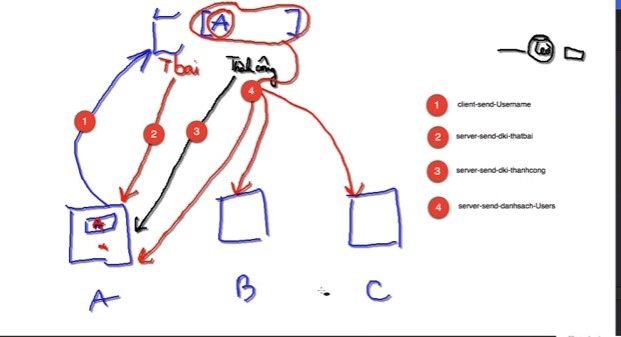 [A]
Tbai
Thành công
4
1
2
3
A
B
C
1 client-send-Username
2 server-send-dki-thatbai
3 server-send-dki-thanhcong
4 server-send-danhsach-Users